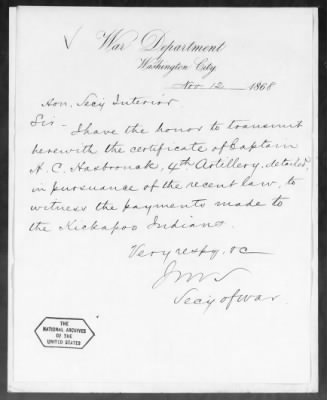 War Department
Washington City
Nov 12 1868
Hon. Secy Interior
Sir - I have the honor to transmit
herewith the certificate of Captain
H. C. Hasbrouck, 4th Artillery, detailed,
in pursuance of the recent law, to
witness the payments made to
the Kickapoo Indians.
Very respy, &c
Secy of War.
THE
NATIONAL ARCHIVES
OF THE
UNITED STATES